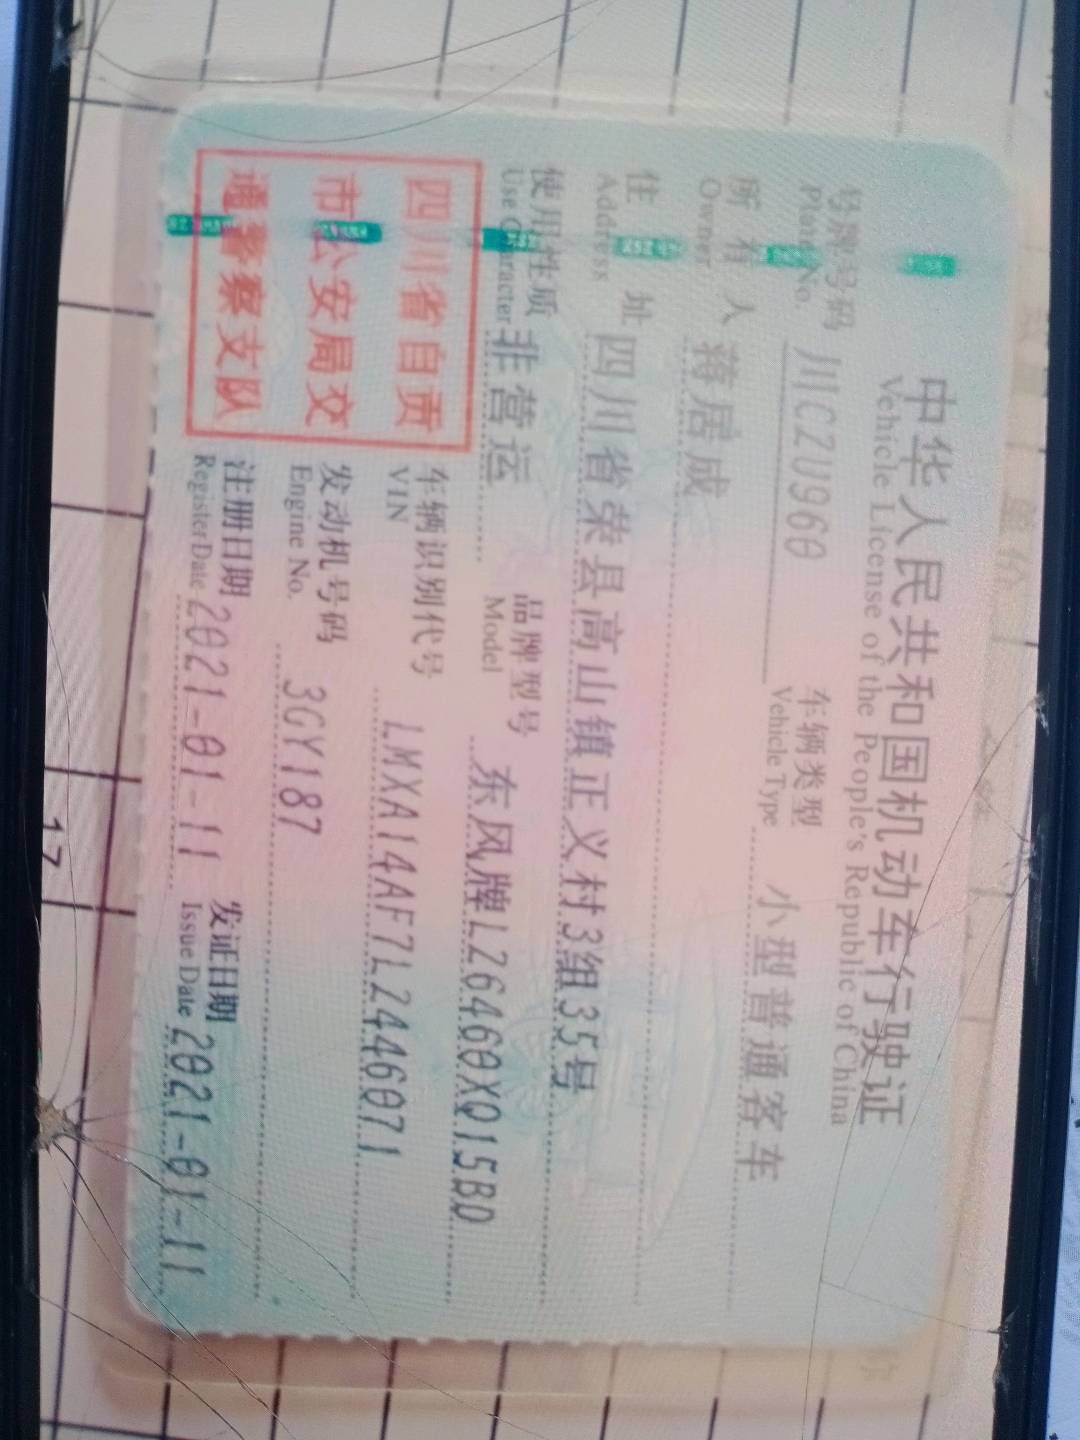 中华人民共和国机动车行驶证
Vehicle License of the People's Republic of China
号牌号码 川CZU960 车辆类型 小型普通客车
Plate No. Vehicle Type
所有人 蒋居成
Owner
住址 四川省荣县高山镇正义村3组35号
Address
使用性质 非营运 品牌型号 东风牌LZ6460XQ15BD
Use Character Model
四川省自贡
市公安局交
通警察支队
车辆识别代号 LMXA14AF7L2446071
VIN
发动机号码 3GY187
Engine No.
注册日期 2021-01-11 发证日期 2021-01-11
Register Date Issue Date
17